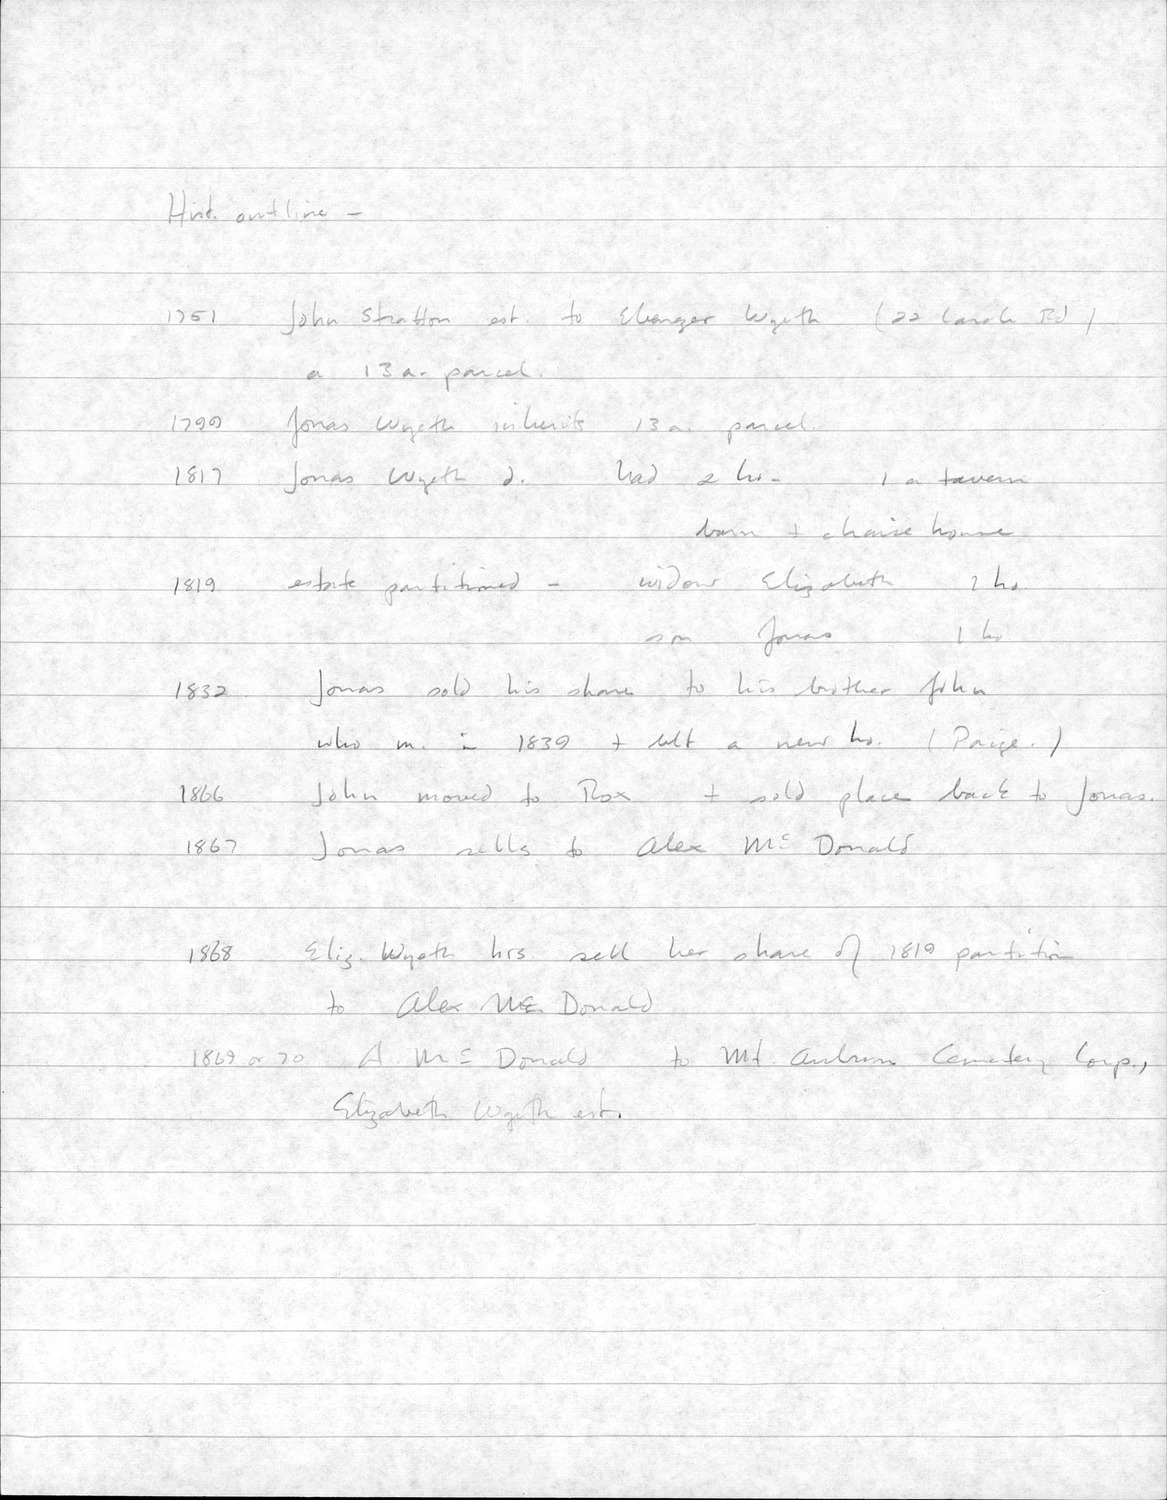 Hist. outline -
1751 John Stratton est. to Ebenezer Wyeth (22 Larch Rd)
a 13 a. parcel.
1799 Jonas Wyeth inherits 13 a. parcel.
1817 Jonas Wyeth d. had 2 ho- 1 a tavern
barn + chaise house
1819 estate partitioned - widow Elizabeth 1 ho.
son Jonas 1 ho
1832 Jonas sold his share to his brother John
who m. in 1839 + blt a new ho. (Paige.)
1866 John moved to Rox + sold place back to Jonas.
1867 Jonas sells to Alex McDonald
1868 Eliz. Wyeth hrs. sell her share of 1819 partition
to Alex McDonald
1869 or 70 A McDonald to Mt. Auburn Cemetery Corp.,
Elizabeth Wyeth est.